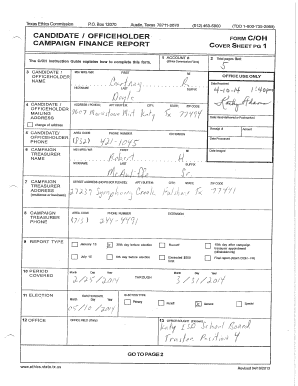 Texas Ethics Commission P.O. Box 12070 Austin, Texas 78711-2070 (512) 463-5800 (TDD 1-800-735-2989)
CANDIDATE / OFFICEHOLDER
CAMPAIGN FINANCE REPORT
FORM C/OH
COVER SHEET PG 1
The C/OH Instruction Guide explains how to complete this form.
1 ACCOUNT #
2 Total pages filed:
5
3 CANDIDATE / OFFICEHOLDER NAME
MS/MRS/MR FIRST MI
NICKNAME LAST SUFFIX
Doyle
OFFICE USE ONLY
Date Received
4-10-14
4 CANDIDATE / OFFICEHOLDER MAILING ADDRESS
ADDRESS / PO BOX; APT / SUITE #; CITY; STATE; ZIP CODE
Katy Tx 77494
change of address
5 CANDIDATE / OFFICEHOLDER PHONE
AREA CODE PHONE NUMBER EXTENSION
421-1045
Receipt # Amount
Date Processed
Date Imaged
6 CAMPAIGN TREASURER NAME
MS/MRS/MR FIRST MI
Robert
NICKNAME LAST SUFFIX
Sr.
7 CAMPAIGN TREASURER ADDRESS
(residence or business)
STREET ADDRESS (NO PO BOX PLEASE); APT / SUITE #; CITY; STATE; ZIP CODE
27239 Symphony Creek Fulshear Tx 77441
8 CAMPAIGN TREASURER PHONE
AREA CODE PHONE NUMBER EXTENSION
(713) 249-4491
9 REPORT TYPE
January 15
30th day before election
Runoff
15th day after campaign treasurer appointment (officeholder only)
July 15
8th day before election
Exceeded $500 limit
Final report (Attach C/OH - FR)
10 PERIOD COVERED
Month Day Year
2/25/2014
THROUGH
Month Day Year
3/31/2014
11 ELECTION
ELECTION DATE
Month Day Year
05/10/2014
ELECTION TYPE
Primary
Runoff
General
Special
12 OFFICE
OFFICE HELD (if any)
13 OFFICE SOUGHT (if known)
Katy ISD School Board
Trustee Position 4
GO TO PAGE 2
www.ethics.state.tx.us